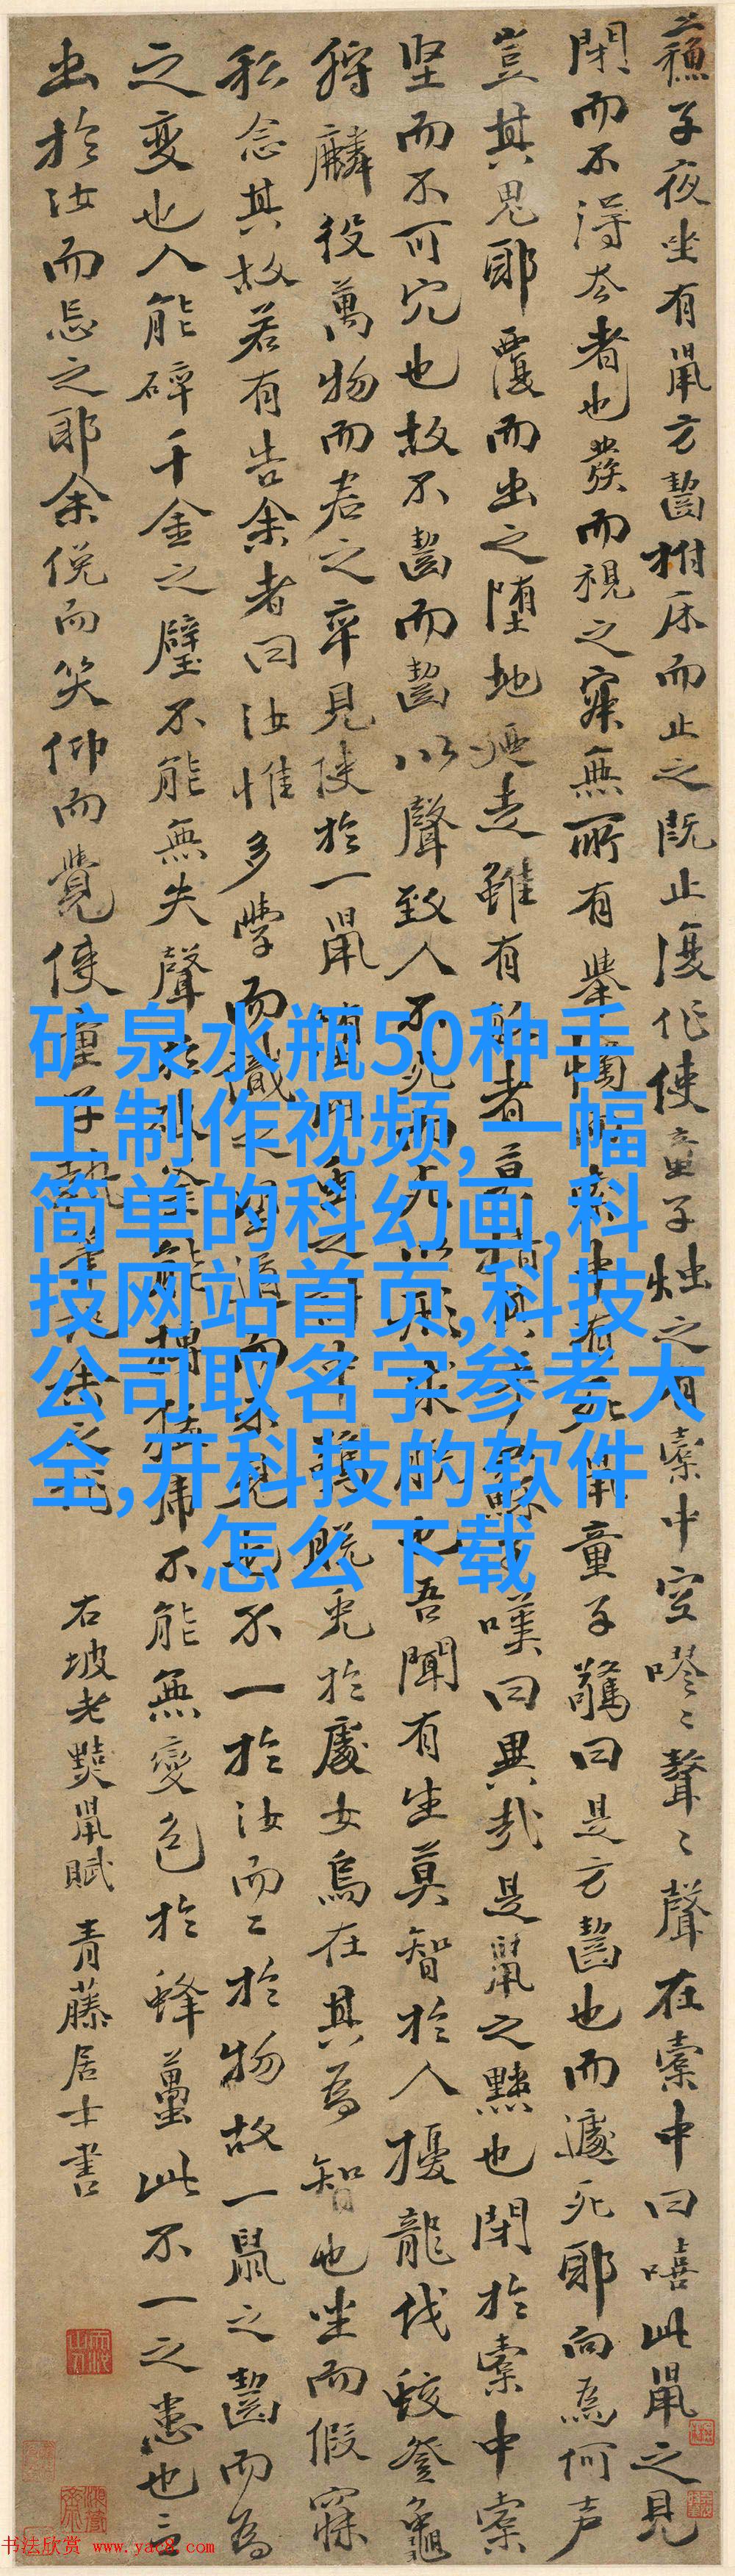 蘇子夜坐有鼠方齧拊床而止之既止復作使童子燭之有橐中空嘐〻聱〻聲在橐中曰嘻此鼠之見
閉而不得去者也發而視之寂無所有舉燭而索中有死鼠童子驚曰是方齧也而遽死耶向為何声
豈其鬼耶覆而出之墮地廼走雖有敏者莫措其手蘇子嘆曰異哉是鼠之黠也閉於橐中橐
堅而不可穴也故不齧而齧以聲致人不死而死以形求脫也吾聞有生莫智於人擾龍伐蛟登龜
狩麟役萬物而君之卒見使於一鼠墮此蟲之計中驚脫兔於處女烏在其為智也坐而假寐
私念其故若有告余者曰汝惟多學而識之望道而未見也不一於汝而二於物故一鼠之齧而為
之變也人能碎千金之璧不能無失聲於破釜能搏猛虎不能無變色於蜂蠆此不一之患也言
出於汝而忘之耶余俛而笑仰而覺使童子執筆記余之
右坡老黠鼠賦 青藤居士書
矿泉水瓶50种手
工制作视频,一幅
简单的科幻画,科
技网站首页,科技
公司取名字参考大
全,开科技的软件
怎么下载
书法欣赏 www.yac8.com